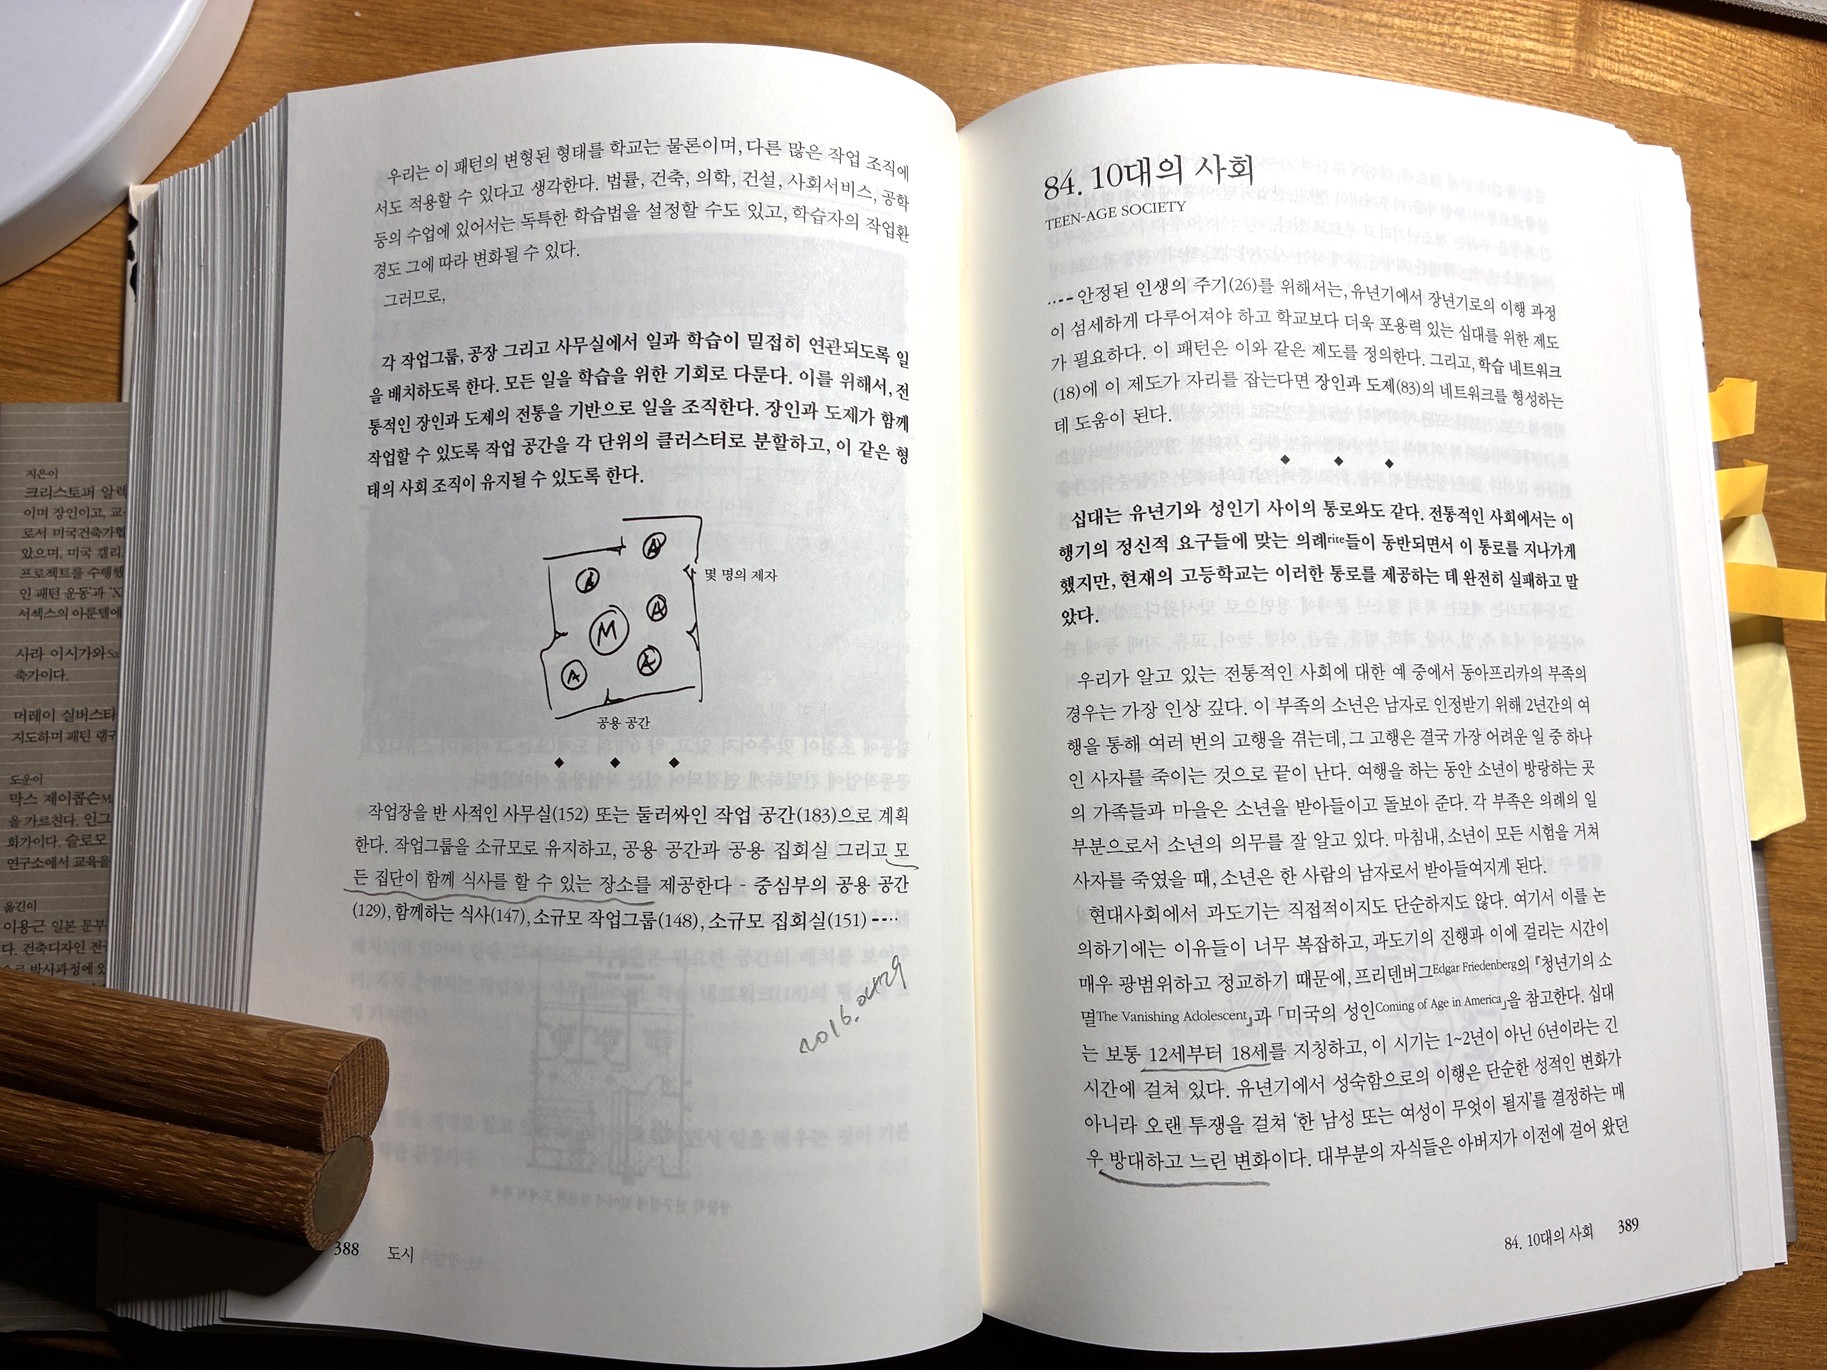 지은이
크리스토퍼 알렉
이며 장인이고, 교
로서 미국건축가협
았으며, 미국 캘리
프로젝트를 수행했
인 패턴 운동과 'X
서섹스의 아룬델에
사라 이시가와
축가이다.
머레이 실버스타
지도하며 패턴 랭귀
도운이
막스 제이콥슨
을 가르친다. 잉그
화가이다. 슬로모
연구소에서 교육을
옮긴이
이용근 일본 문부
다. 건축디자인 전
우리는 이 패턴의 변형된 형태를 학교는 물론이며, 다른 많은 작업 조직에
서도 적용할 수 있다고 생각한다. 법률, 건축, 의학, 건설, 사회서비스, 공학
등의 수업에 있어서는 독특한 학습법을 설정할 수도 있고, 학습자의 작업환
경도 그에 따라 변화될 수 있다.
그러므로,
각 작업그룹, 공장 그리고 사무실에서 일과 학습이 밀접히 연관되도록 일
을 배치하도록 한다. 모든 일을 학습을 위한 기회로 다룬다. 이를 위해서, 전
통적인 장인과 도제의 전통을 기반으로 일을 조직한다. 장인과 도제가 함께
작업할 수 있도록 작업 공간을 각 단위의 클러스터로 분할하고, 이 같은 형
태의 사회 조직이 유지될 수 있도록 한다.
A
A
몇 명의 제자
A
M
A
A
공용 공간
작업장을 반 사적인 사무실(152) 또는 둘러싸인 작업 공간(183)으로 계획
한다. 작업그룹을 소규모로 유지하고, 공용 공간과 공용 집회실 그리고 모
든 집단이 함께 식사를 할 수 있는 장소를 제공한다 - 중심부의 공용 공간
(129), 함께하는 식사(147), 소규모 작업그룹(148), 소규모 집회실(151) ----
388 도시
84. 10대의 사회
TEEN-AGE SOCIETY
.... 안정된 인생의 주기(26)를 위해서는, 유년기에서 장년기로의 이행 과정
이 섬세하게 다루어져야 하고 학교보다 더욱 포용력 있는 십대를 위한 제도
가 필요하다. 이 패턴은 이와 같은 제도를 정의한다. 그리고, 학습 네트워크
(18)에 이 제도가 자리를 잡는다면 장인과 도제(83)의 네트워크를 형성하는
데 도움이 된다.
십대는 유년기와 성인기 사이의 통로와도 같다. 전통적인 사회에서는 이
행기의 정신적 요구들에 맞는 의례rite들이 동반되면서 이 통로를 지나가게
했지만, 현재의 고등학교는 이러한 통로를 제공하는 데 완전히 실패하고 말
았다.
우리가 알고 있는 전통적인 사회에 대한 예 중에서 동아프리카의 부족의
경우는 가장 인상 깊다. 이 부족의 소년은 남자로 인정받기 위해 2년간의 여
행을 통해 여러 번의 고행을 겪는데, 그 고행은 결국 가장 어려운 일 중 하나
인 사자를 죽이는 것으로 끝이 난다. 여행을 하는 동안 소년이 방랑하는 곳
의 가족들과 마을은 소년을 받아들이고 돌보아 준다. 각 부족은 의례의 일
부분으로서 소년의 의무를 잘 알고 있다. 마침내, 소년이 모든 시험을 거쳐
사자를 죽였을 때, 소년은 한 사람의 남자로서 받아들여지게 된다.
현대사회에서 과도기는 직접적이지도 단순하지도 않다. 여기서 이를 논
의하기에는 이유들이 너무 복잡하고, 과도기의 진행과 이에 걸리는 시간이
매우 광범위하고 정교하기 때문에, 프리덴버그Edgar Friedenberg의 『청년기의 소
멸The Vanishing Adolescent』과 「미국의 성인Coming of Age in America」을 참고한다. 십대
는 보통 12세부터 18세를 지칭하고, 이 시기는 1~2년이 아닌 6년이라는 긴
시간에 걸쳐 있다. 유년기에서 성숙함으로의 이행은 단순한 성적인 변화가
아니라 오랜 투쟁을 걸쳐 '한 남성 또는 여성이 무엇이 될지'를 결정하는 매
우 방대하고 느린 변화이다. 대부분의 자식들은 아버지가 이전에 걸어 왔던
84. 10대의 사회 389